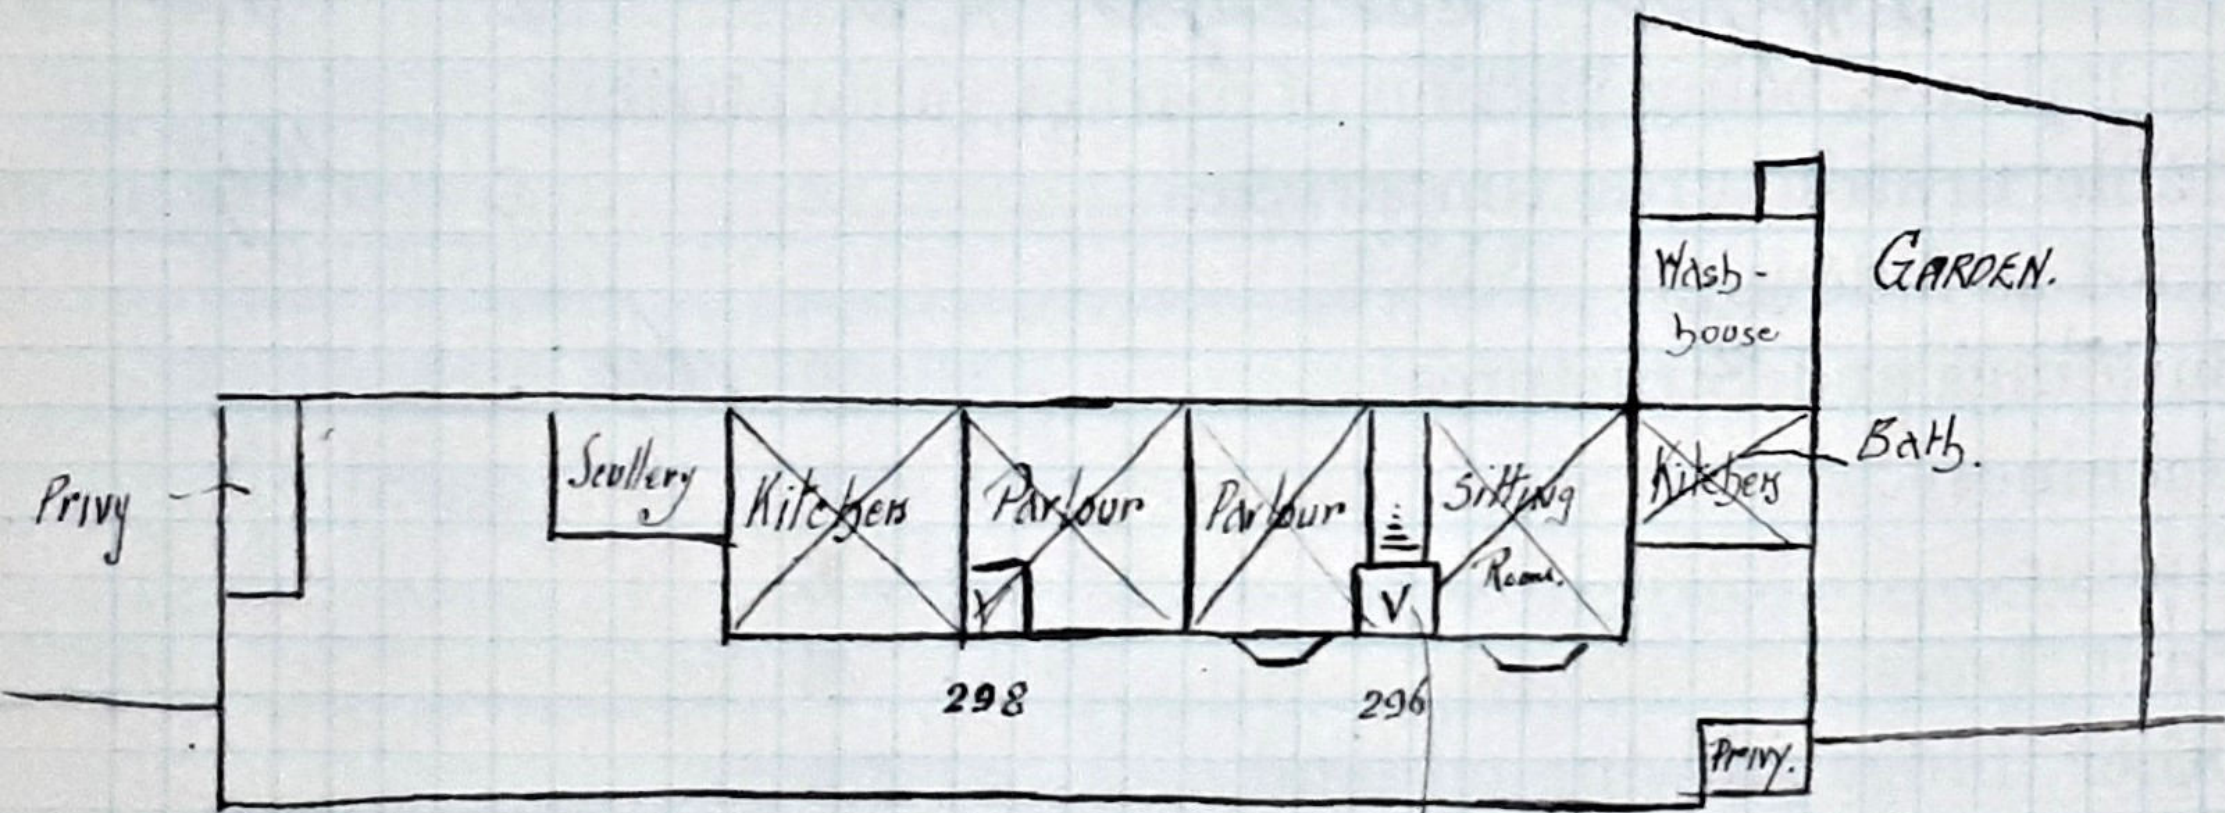 Wash-
house
GARDEN.
Privy
Scullery
Kitchen
Parlour
Parlour
Sitting
Room.
Kitchen
Bath.
V
V
298
296
Privy.